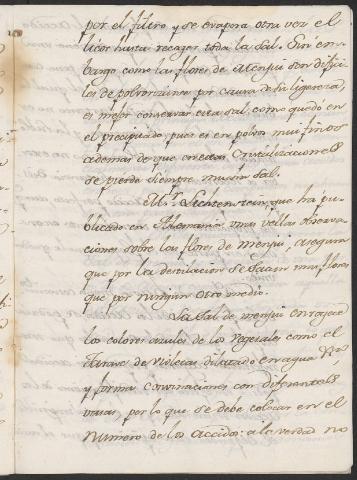 por el filtro y se evapora otra vez el
licor hasta recager toda la sal. Sin em
bargo como las flores de Menjui son dificir
les de polvorizarse por causa de su ligereza,
es mejor conservar esta sal como quedó en
el precipitado, pues es en polvos mui finos
ademas de que en estas Cristalizaciones
se pierde siempre mucha sal.
Mr. Lichtenstein, que ha pu
blicado en Alemania unas vellas observa
ciones sobre las flores de menjui, asegura
que por la destilacion se sacan mas flores
que por ningun otro medio.
La sal de menjui enrogece
los colores azules de los vegetales como el
Jarave de violetas dilatado en agua &a
y forma convinaciones con diferentes
vasas, por lo que se debe colocar en el
numero de los accidos: a la verdad no